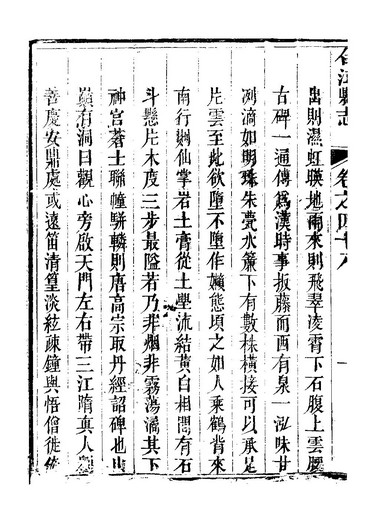 合江縣志
卷之四十八
出則濕虹映地雨來則飛翠凌霄下石腹上雲腰
古碑一通傳爲漢時事扳藤而西有泉一泓味甘
洌滴如明珠朱甍水簾下有數株橫接可以承足
片雲至此欲墮不墮作嬾態頃之如人乘鶴背來
南行則仙掌岩土膏從土壆流結黃白相間有石
斗懸片木度三步最隘若乃非烟非霧蕩潏其下
神宮蒼土聯幢駢轔則唐高宗取丹經詔碑也
巓有洞曰觀心旁啟天門左右帶三江隋真人
善慶安鼎處或遠笛清篁淡絃疎鐘與悟僧徙倚